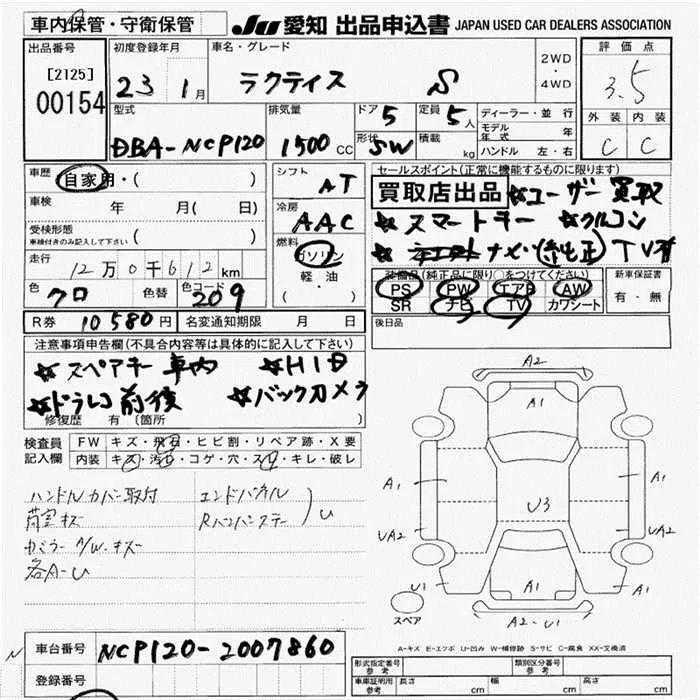 車内保管・守衛保管
JU 愛知 出品申込書 JAPAN USED CAR DEALERS ASSOCIATION
出品番号
[2125]
00154
初度登録年月
23 1月
車名・グレード
ラクティス S
2WD
・
4WD
評価点
3.5
外装 内装
C C
型式
DBA-NCP120
排気量
1500 CC
ドア 5
形状 SW
定員 5人
積載 kg
ディーラー・並行
モデル年式 年
ハンドル 左・右
車歴
自家用・( )
車検 年 月( 日)
受検形態
車検付きのみ記入して下さい ( )
走行
12万0千612km
色 クロ 色替 色コード 209
R券 10580円 名変通知期限 月 日
シフト
AT
冷房
AAC
燃料
ガソリン
軽・油
( )
セールスポイント(正常に機能するものに限ります)
買取店出品 ☆ユーザー買取
☆スマートキー ☆クルコン
ナビ(純正)TV付
装備品(純正品に限り○をつけてください)
PS PW エアB AW
SR ナビ TV カワシート
新車保証書
有・無
後日品
注意事項申告欄(不具合内容等は具体的に記入して下さい)
☆スペアキー車内 ☆HID
☆ドラレコ前後 ☆バックカメラ
修復歴 有 〔箇所 〕
検査員記入欄
FW キズ・飛石・ヒビ割・リペア跡・X要
内装 キズ・汚れ・コゲ・穴・スレ・キレ・破レ
ハンドルカバー取付 エンドパネル
荷室キズ Rバンパステー U
A/W.キズ
各A-U
A2
A1
A1 A1
U3
UA2 UA2
U1 A1 A1
スペア
A2-U1
A-キズ E-エクボ U-凹み W-補修跡 S-サビ C-腐食 XX-交換済
車台番号 NCP120-2007860
登録番号
形式指定番号 参考
類別区分番号 参考
車庫証明用 参考 長さ cm 幅 cm 高さ cm